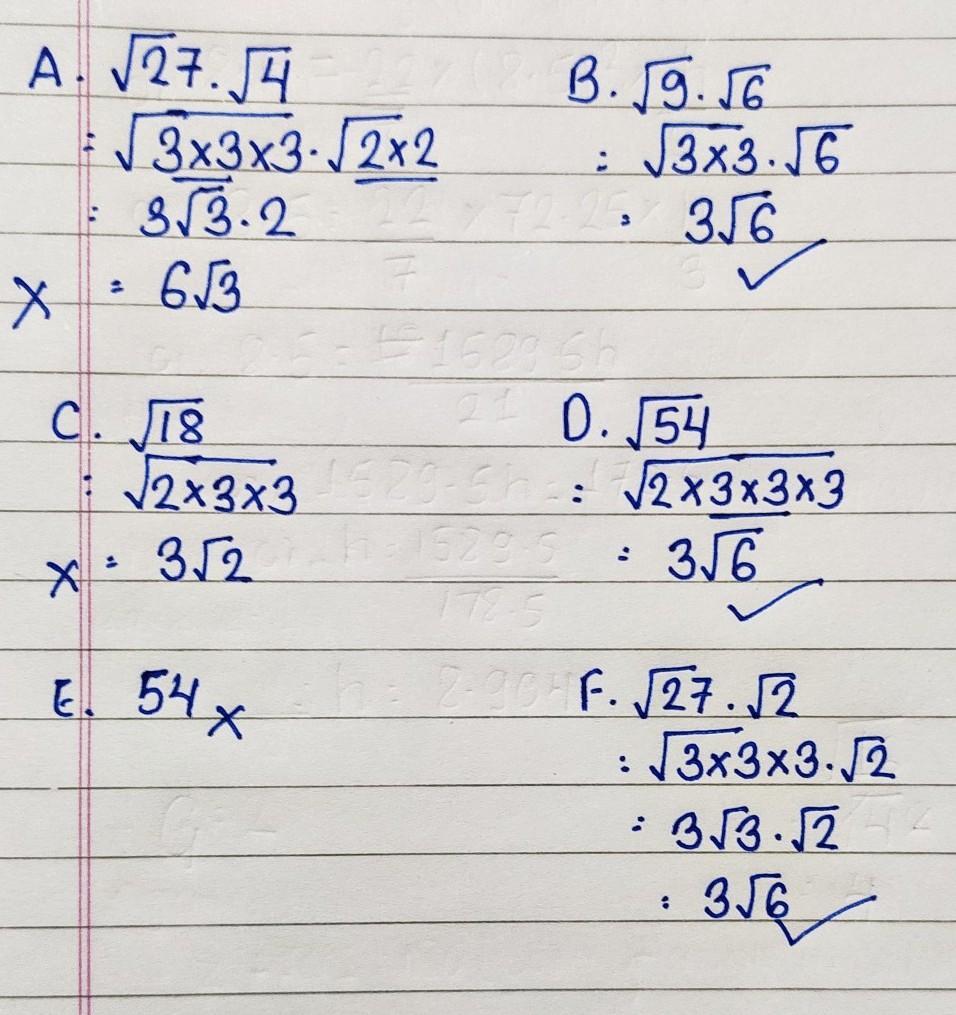 A. √27 . √4
= √3×3×3 . √2×2
= 3√3 . 2
X = 6√3
B. √9 . √6
= √3×3 . √6
= 3√6 ✓
C. √18
= √2×3×3
X = 3√2
D. √54
= √2×3×3×3
= 3√6 ✓
E. 54 X
F. √27 . √2
= √3×3×3 . √2
= 3√3 . √2
= 3√6 ✓